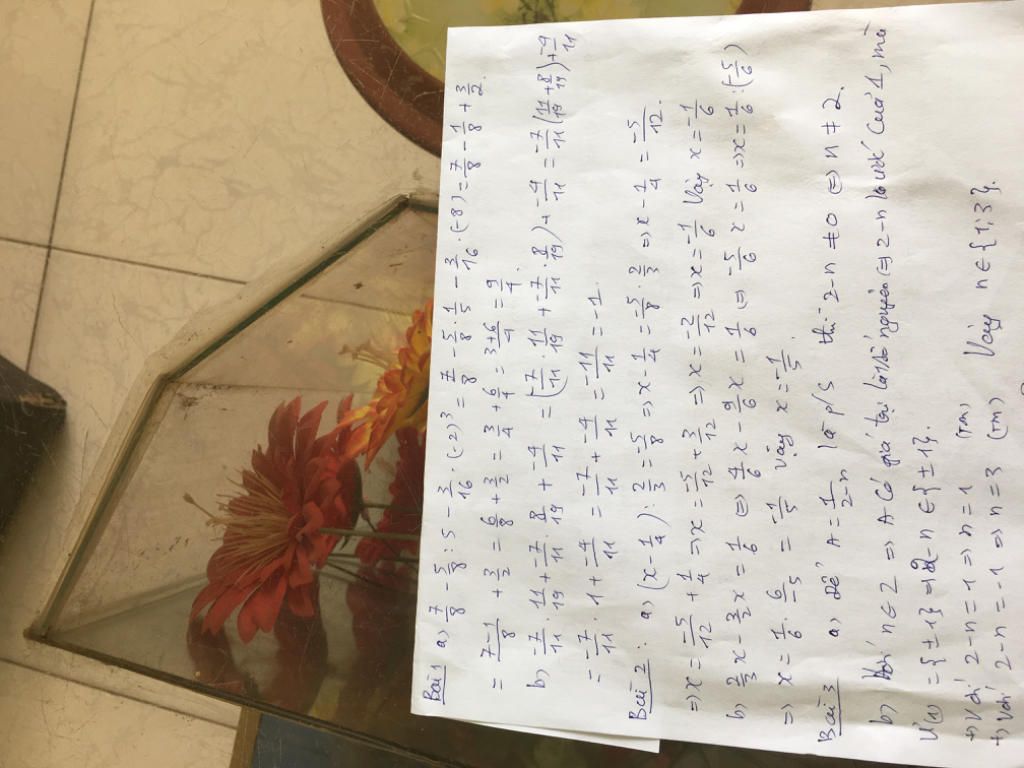 Bài 1 a) 7/8 - 5/8 : 5 - 3/16 . (-2)³ = 7/8 - 5/8 . 1/5 - 3/16 . (-8) = 7/8 - 1/8 + 3/2.
= 7-1/8 + 3/2 = 6/8 + 3/2 = 3/4 + 6/4 = 3+6/4 = 9/4.
b) -7/11 . 11/19 + -7/11 . 8/19 + -4/11 = (-7/11 . 11/19 + -7/11 . 8/19) + -4/11 = -7/11 (11/19 + 8/19) + -4/11
= -7/11 . 1 + -4/11 = -7/11 + -4/11 = -11/11 = -1.
Bài 2: a) (x - 1/4) : 2/3 = -5/8 => x - 1/4 = -5/8 . 2/3 => x - 1/4 = -5/12.
=> x = -5/12 + 1/4 => x = -5/12 + 3/12 => x = -2/12 => x = -1/6 Vậy x = -1/6
b) 2/3 x - 3/2 x = 1/6 (=) 4/6 x - 9/6 x = 1/6 (=) -5/6 x = 1/6 => x = 1/6 : (-5/6)
=> x = 1/6 . 6/-5 = -1/5 Vậy x = -1/5
Bài 3 a) Để A = 1/2-n là p/s thì 2-n ≠ 0 (=) n ≠ 2.
b) Với n ∈ Z => A có giá trị là số nguyên (=) 2-n là ước của 1, mà
Ư(1) = {±1} => 2-n ∈ {±1}.
+) Với 2-n = 1 => n = 1 (TM)
+) Với 2-n = -1 => n = 3 (TM) Vậy n ∈ {1; 3}.